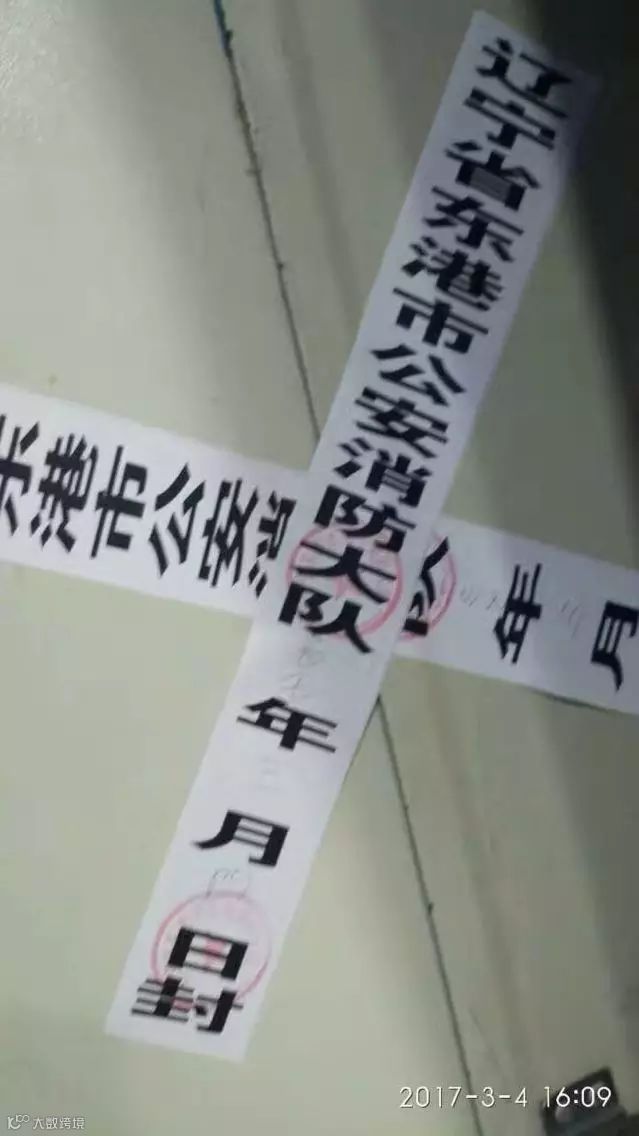 辽宁省东港市公安消防大队 年三月四日封
东港市公安消 队 年 月
2017-3-4 16:09
大数跨境